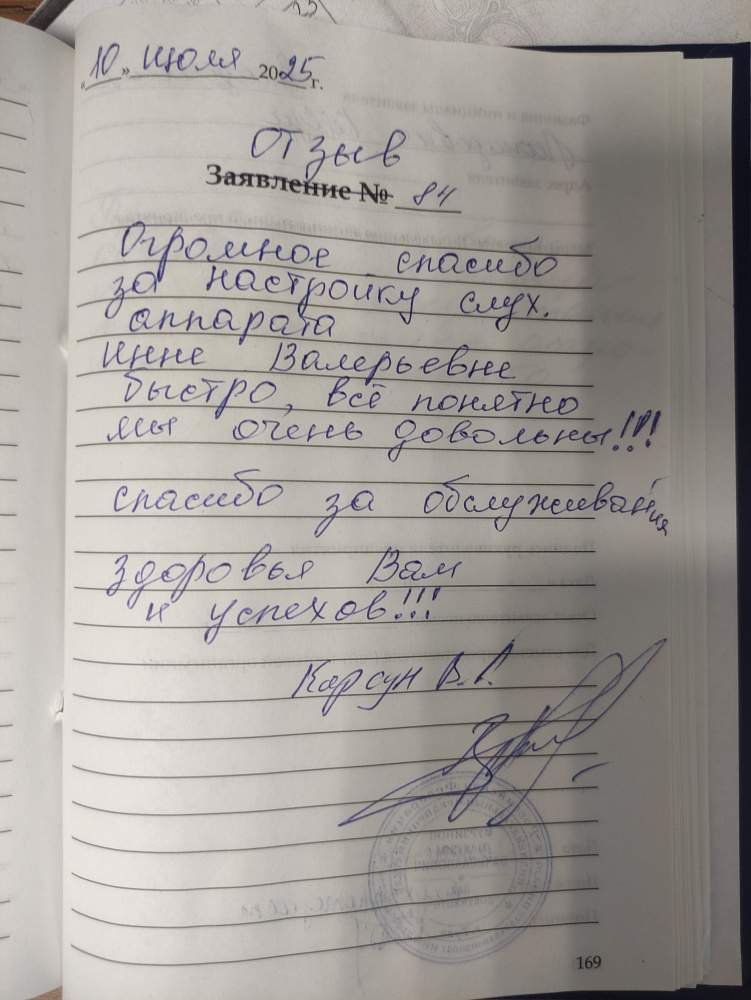 «10» июля 2025 г.
Отзыв
Заявление № 84
Огромное спасибо
за настройку слух.
аппарата
Инне Валерьевне
быстро, всё понятно
мы очень довольны!!!
спасибо за обслуживания
Здоровья Вам
и успехов!!!
Карсун В.Г.
169